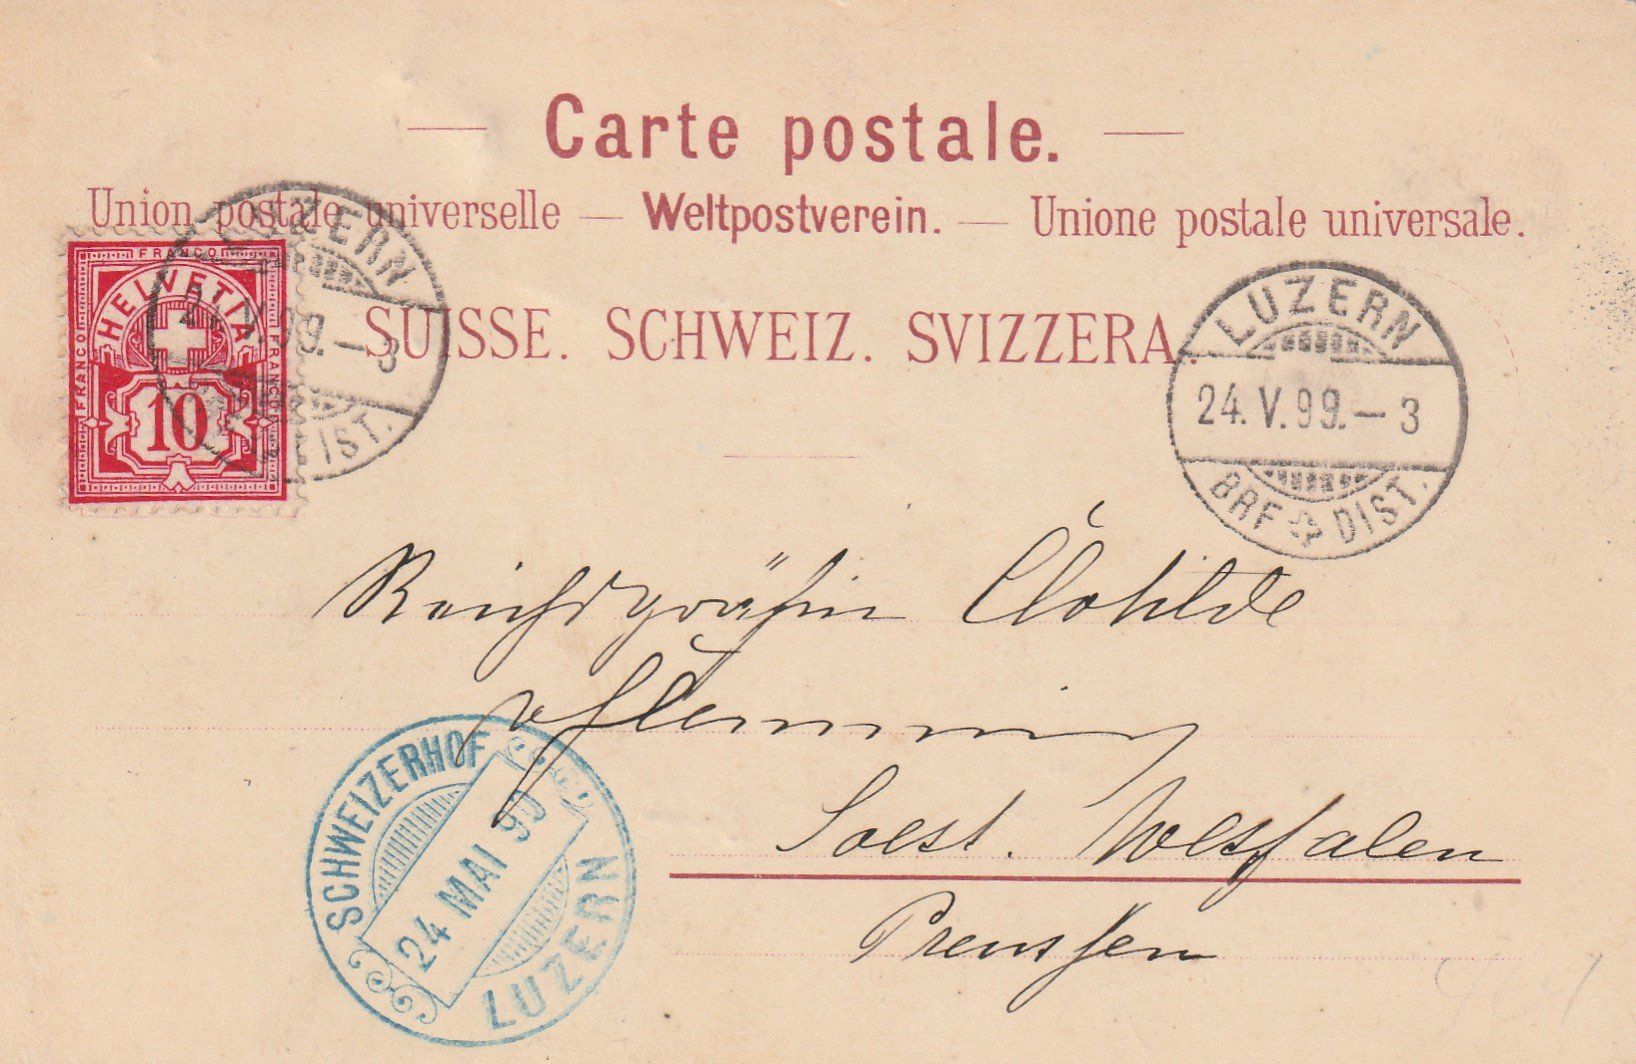 — Carte postale. —
Union postale universelle — Weltpostverein. — Unione postale universale.
SUISSE. SCHWEIZ. SVIZZERA.
FRANCO
FRANCO
FRANCO
HELVETIA
10
LUZERN
24. V. 99. – 3
BRF DIST.
LUZERN
24. V. 99. – 3
BRF DIST.
Reichsgräfin Clotilde
v Flemming
Soest. Westfalen
Preussen
SCHWEIZERHOF
24 MAI 99
LUZERN